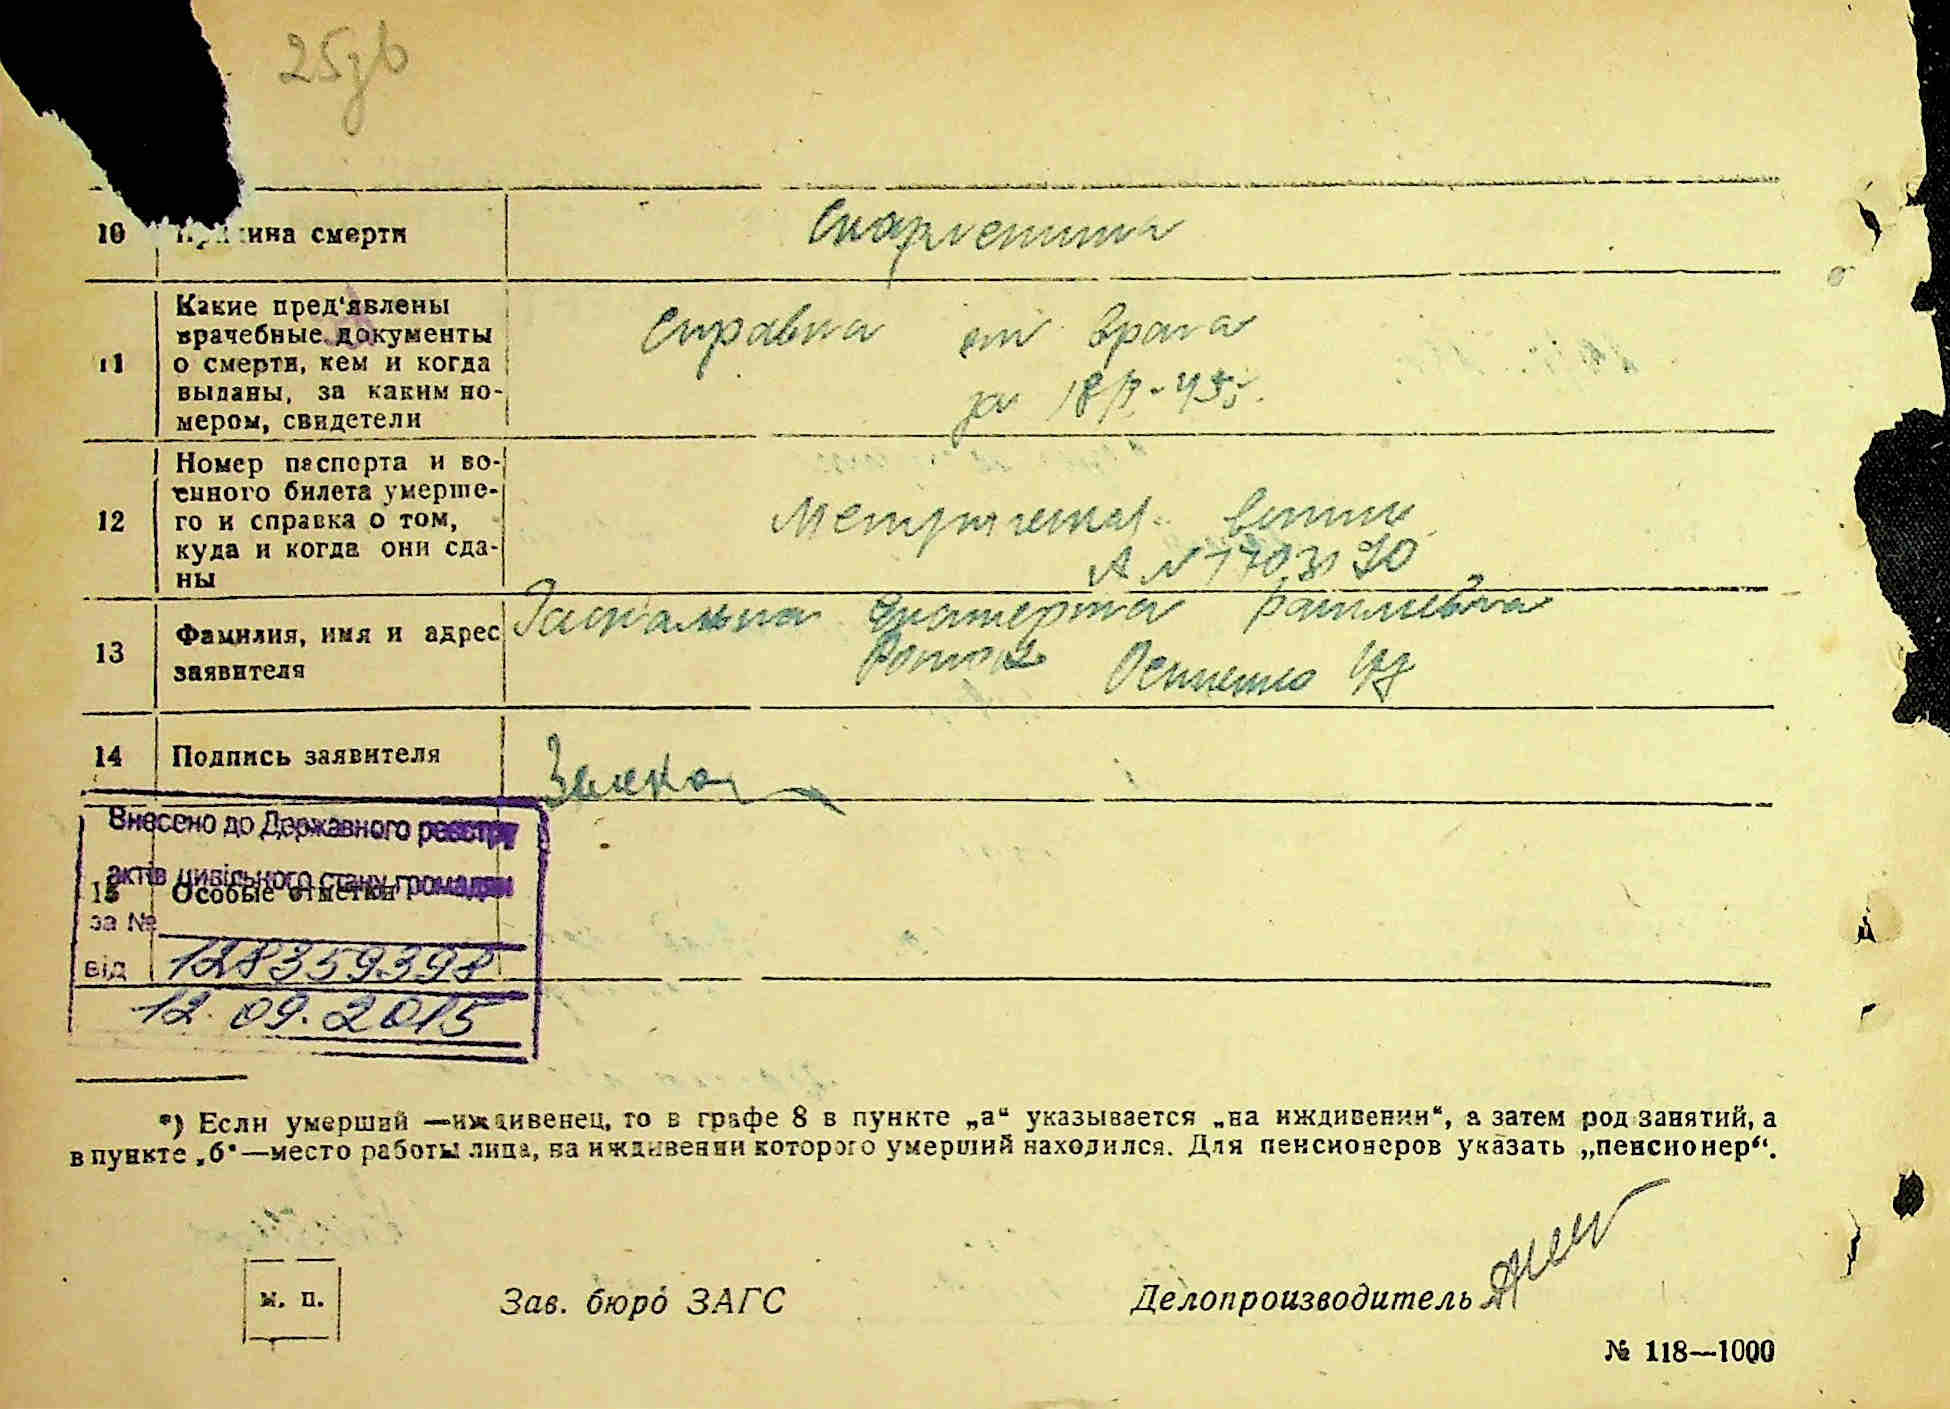 25зв
10 Причина смерти
Скарлетина
11 Какие пред'явлены
врачебные документы
о смерти, кем и когда
выданы, за каким но-
мером, свидетели
Справка от врача
за 18/
12 Номер паспорта и во-
енного билета умерше-
го и справка о том,
куда и когда они сда-
ны
Метрическая
А №
13 Фамилия, имя и адрес
заявителя
Екатерина
Осипенко
14 Подпись заявителя
Внесено до Державного реєстру
актів цивільного стану громадян
15 Особые отметки
за №
від 128359398
12.09.2015
*) Если умерший —иждивенец, то в графе 8 в пункте „а“ указывается „на иждивении“, а затем род занятий, а
в пункте „б“—место работы лица, на иждивении которого умерший находился. Для пенсионеров указать „пенсионер“.
м. п.
Зав. бюро ЗАГС
Делопроизводитель
№ 118—1000